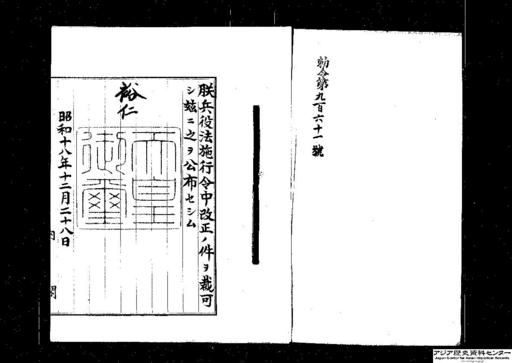 勅令第九百六十一號
朕兵役法施行令中改正ノ件ヲ裁可
シ玆ニ之ヲ公布セシム
裕仁
天皇
御璽
昭和十八年十二月二十八日
内閣
アジア歴史資料センター
Japan Center for Asian Historical Records